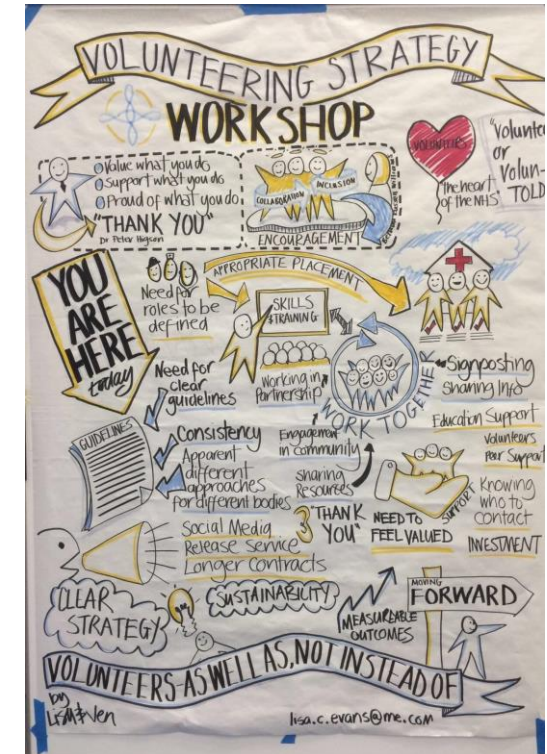 VOLUNTEERING STRATEGY
WORKSHOP
Value what you do
Support what you do
Proud of what you do
"THANK YOU"
Dr Peter Higson
COLLABORATION
INCLUSION
ENCOURAGEMENT
VOLUNTEERS
the heart
of the NHS
"Voluntee
or
Volun-
TOLD
YOU
ARE
HERE
today
Need for
roles to be
defined
APPROPRIATE PLACEMENT
SKILLS
& TRAINING
Working in
Partnership
WORK TOGETHER
Signposting
Sharing Info
Need for
clear
guidelines
GUIDELINES
Consistency
Apparent
different
approaches
for different bodies
Engagement
in community
Sharing
Resources
Education Support
Volunteers
Peer Support
SUPPORT
Knowing
who to
contact
INVESTMENT
"THANK
YOU"
NEED TO
FEEL VALUED
Social Media
Release Service
Longer Contracts
CLEAR
STRATEGY
SUSTAINABILITY
MEASURABLE
OUTCOMES
MOVING
FORWARD
VOLUNTEERS-AS WELL AS, NOT INSTEAD OF
by
lisa.c.evans@me.com